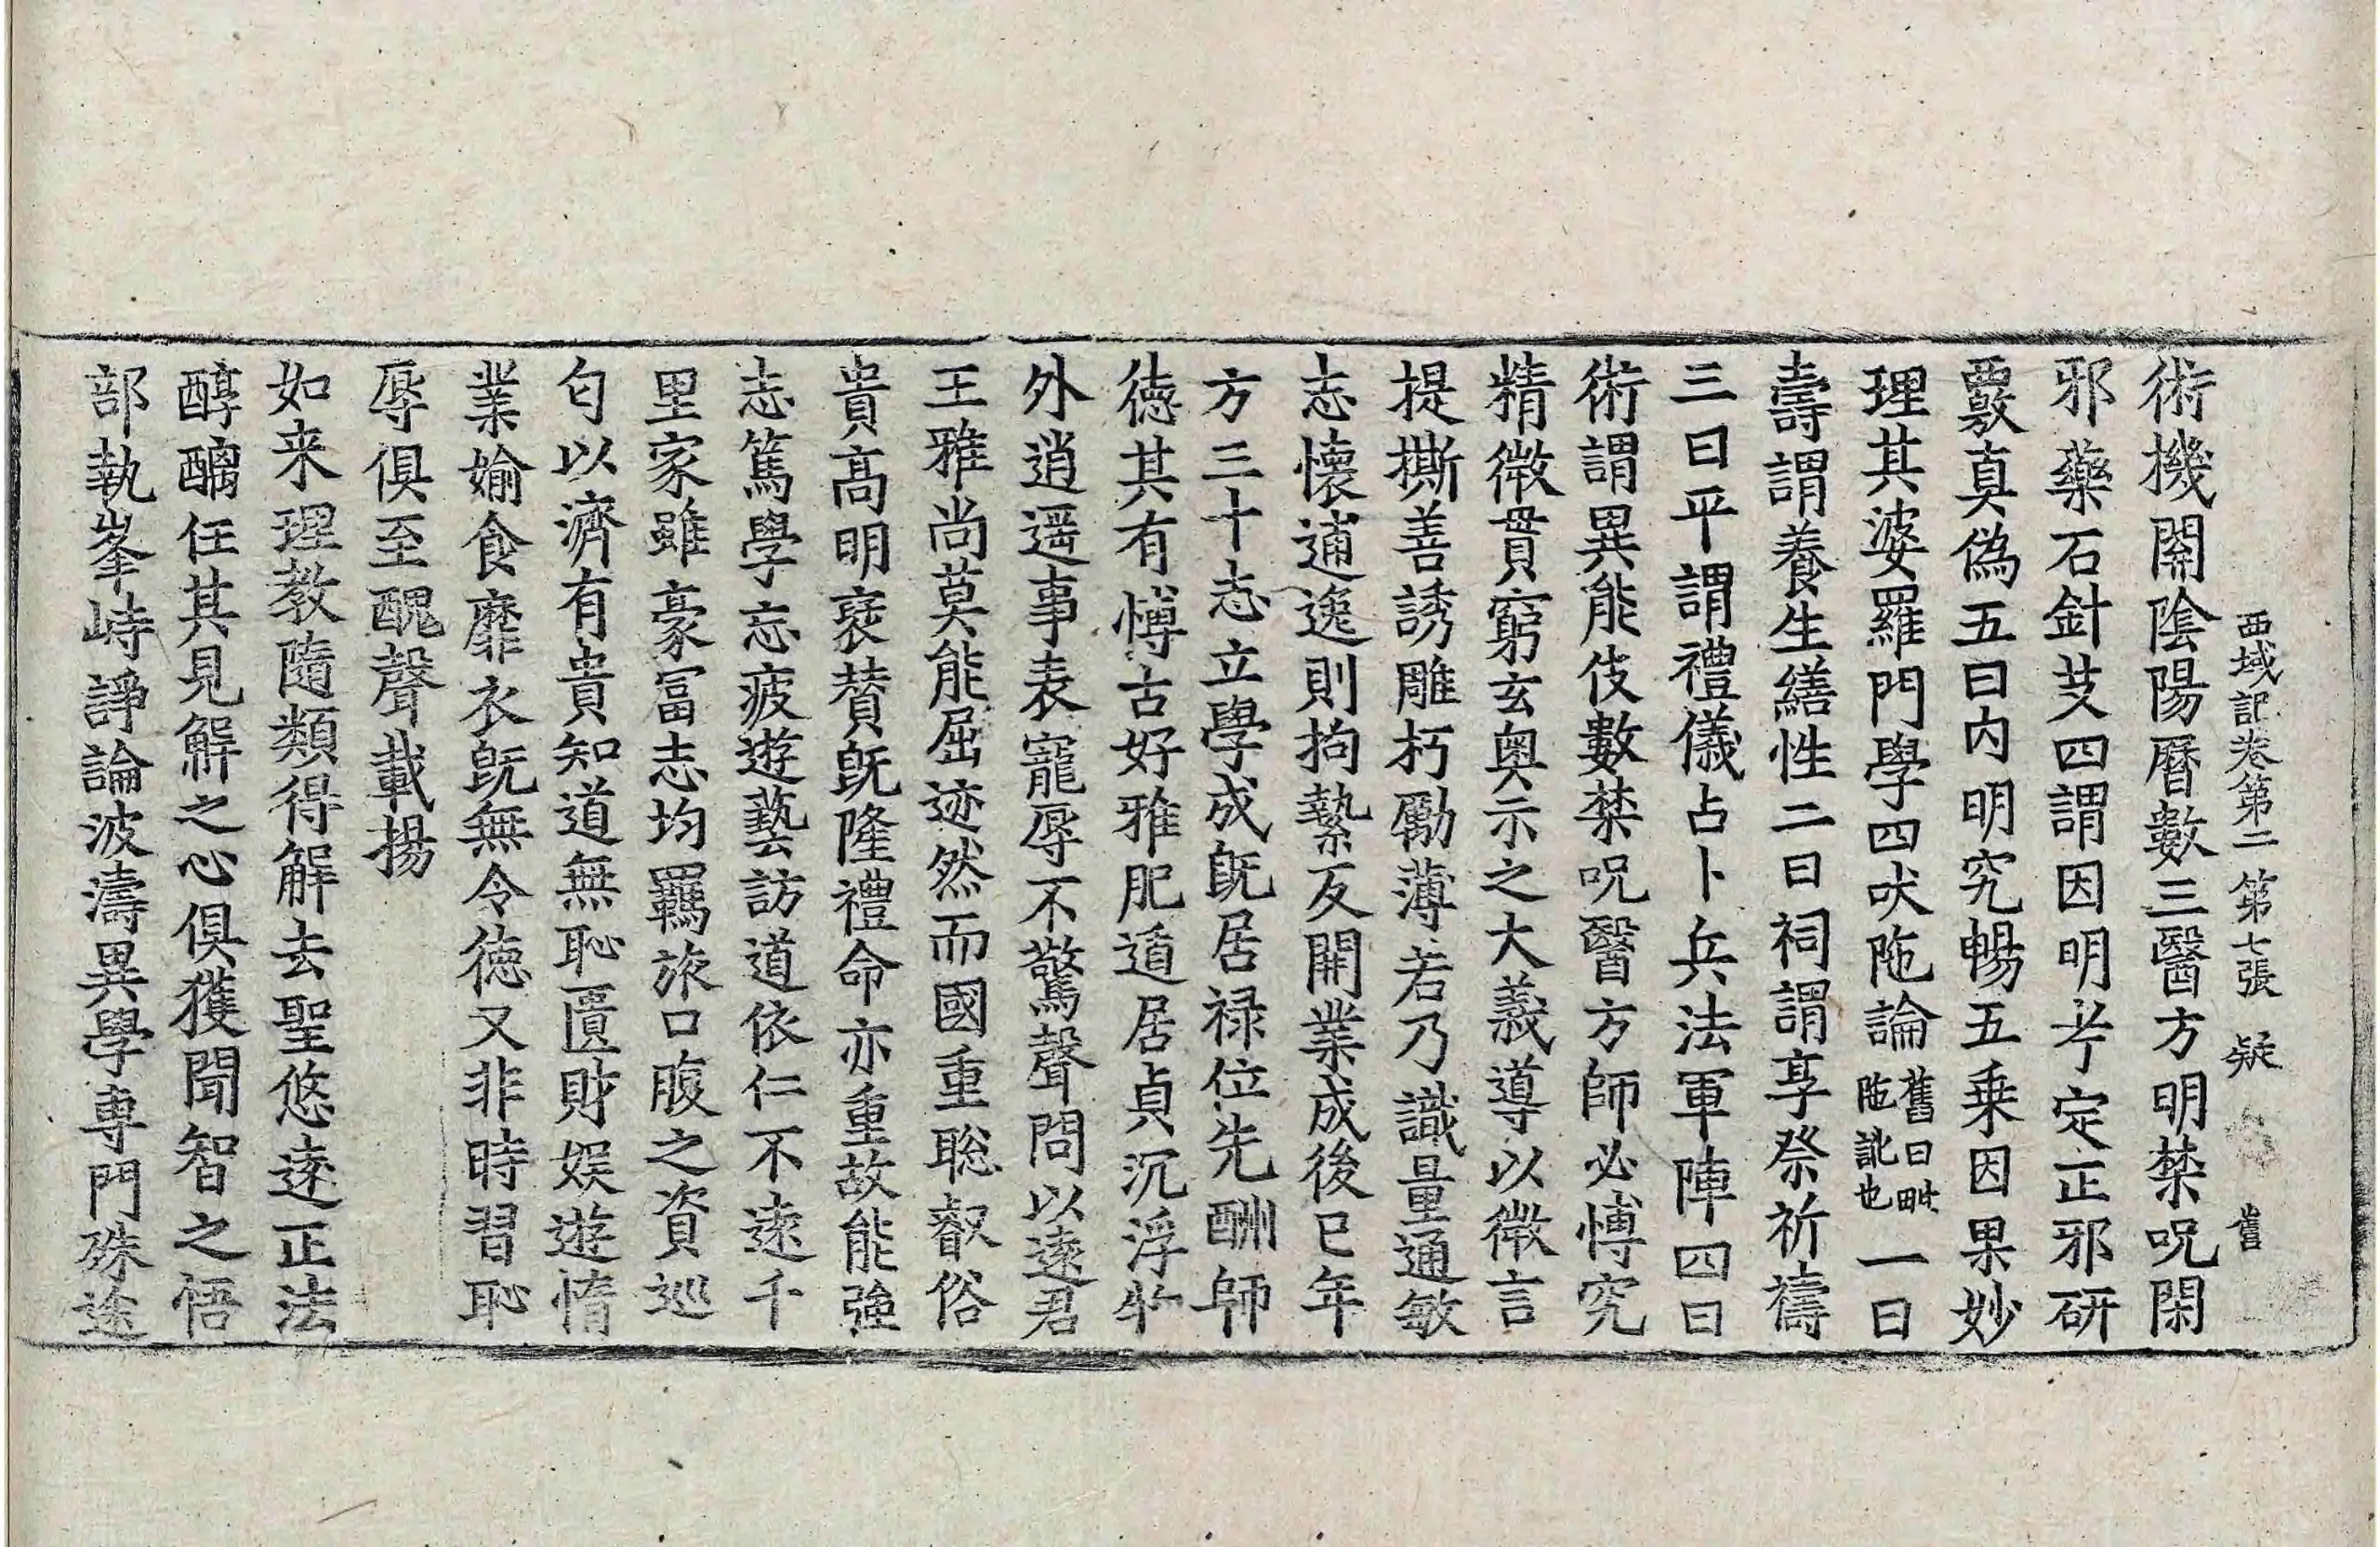 西域記卷第二 第七張 疑
術機關陰陽曆數三醫方明禁呪閑
邪藥石針艾四謂因明考定正邪研
覈真偽五曰內明究暢五乘因果妙
理其婆羅門學四吠陁論舊曰毗陁訛也一曰
壽謂養生繕性二曰祠謂享祭祈禱
三曰平謂禮儀占卜兵法軍陣四曰
術謂異能伎數禁呪醫方師必博究
精微貫窮玄奧示之大義導以微言
提撕善誘雕朽勵薄若乃識量通敏
志懷逋逸則拘縶反開業成後已年
方三十志立學成旣居祿位先酬師
德其有博古好雅肥遁居貞沉浮物
外逍遥事表寵辱不驚聲問以遠君
王雅尚莫能屈迹然而國重聡叡俗
貴高明褒賛旣隆禮命亦重故能強
志篤學忘疲遊藝訪道依仁不遠千
里家雖豪富志均羈旅口腹之資巡
匂以濟有貴知道無恥匱財娛遊惰
業媮食靡衣旣無令德又非時習恥
辱俱至醜聲載揚
如来理教隨類得解去聖悠遠正法
醇醨任其見解之心俱獲聞智之悟
部執峯峙諍論波濤異學專門殊途